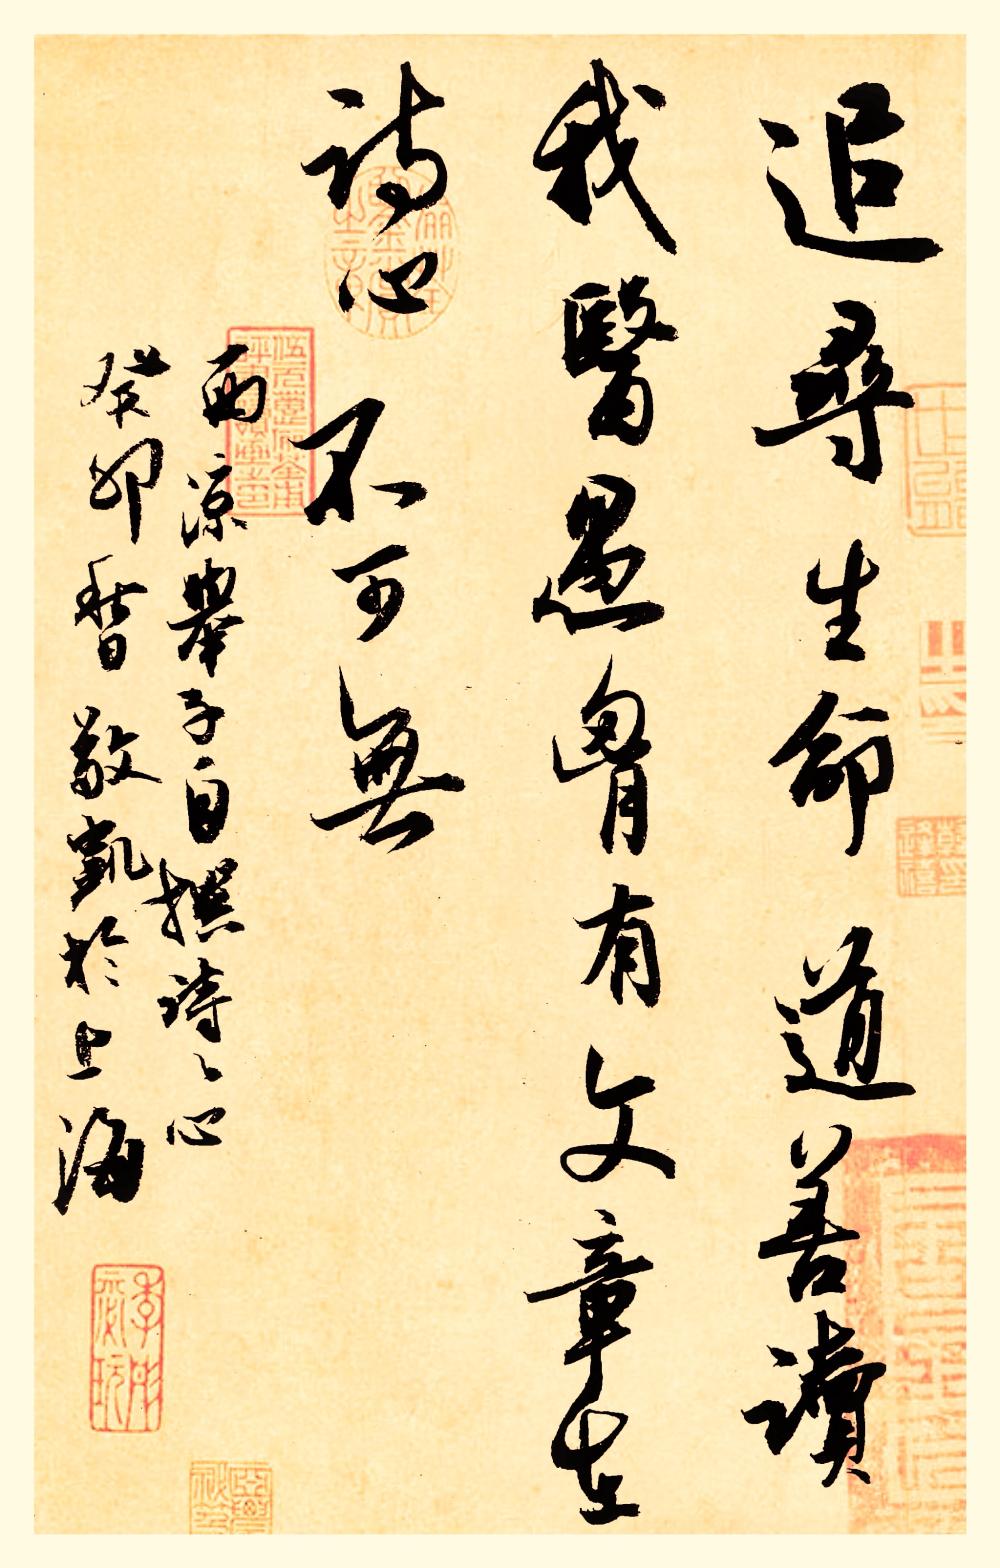 追尋生命道善讀
我醫愚胷有文章在
詩心不可無
西涼舉子自撰詩〻心
癸卯春敬凱於上海